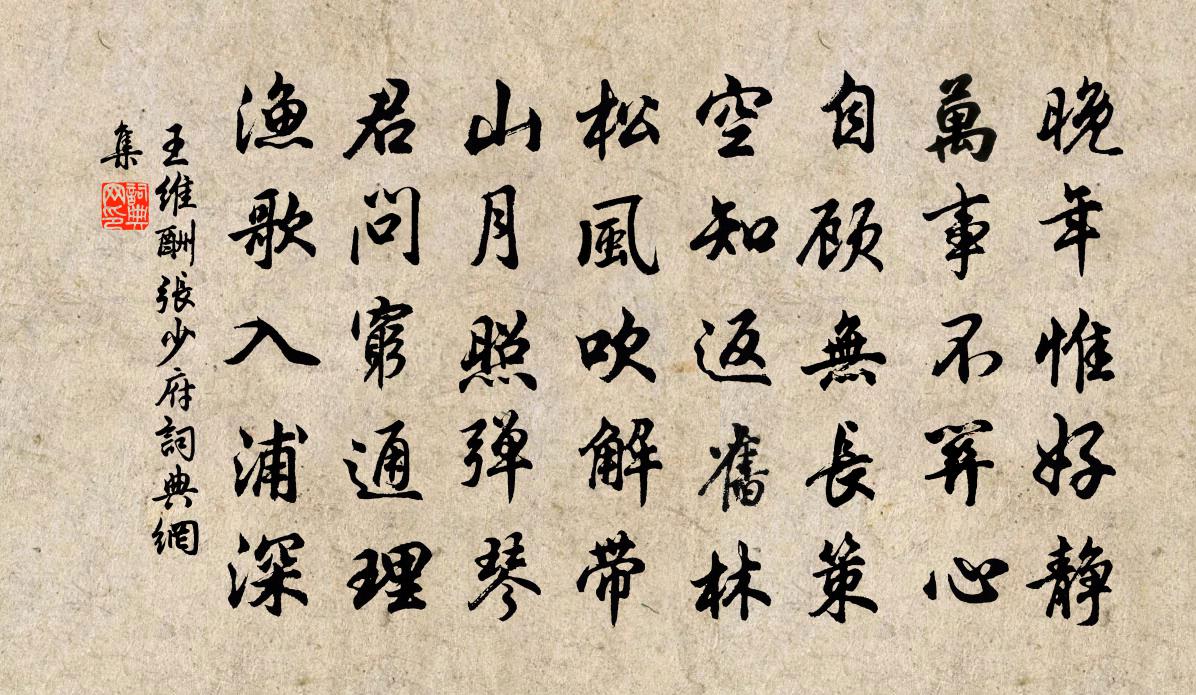 晚年惟好静
萬事不關心
自顾無長策
空知返舊林
松風吹解带
山月照弹琴
君問窮通理
漁歌入浦深
王維酬張少府詞典網
集
詞典
网印